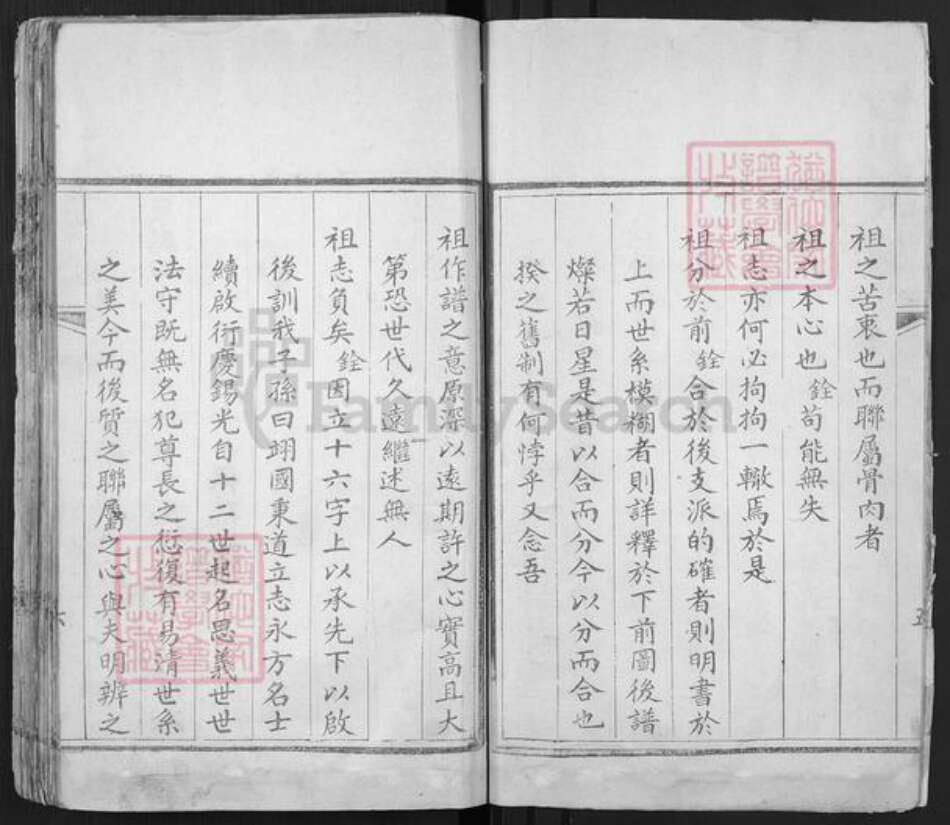 祖之苦衷也而聯屬骨肉者
祖之本心也銓苟能無失
祖志亦何必拘拘一轍焉於是
祖分於前銓合於後支派的確者則明書於
上而世系模糊者則詳釋於下前圖後譜
燦若日星是昔以合而分今以分而合也
揆之舊制有何悖乎又念吾
五
祖作譜之意原深以遠期許之心實高且大
第恐世代久遠繼述無人
祖志負矣銓因立十六字上以承先下以啟
後訓我子孫曰翊國秉道立志永方名士
續啟衍慶錫光自十二世起名思義世世
法守既無名犯尊長之愆復有易清世系
之美今而後質之聯屬之心與夫明辨之
六
FamilySearch